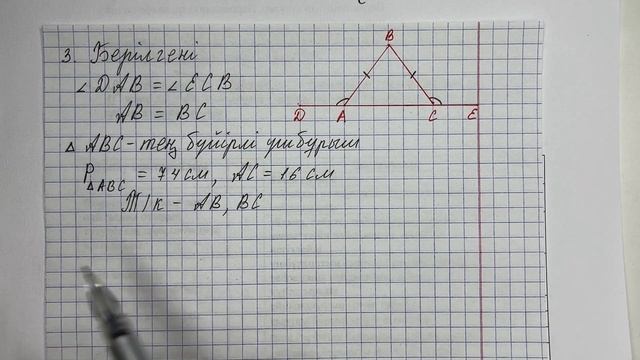 3. Берілгені
∠DAB = ∠ECB
AB = BC
△ ABC - тең бүйірлі үшбұрыш
P△ABC = 74 см, AC = 16 см
Т/к - AB, BC
B
D A C E